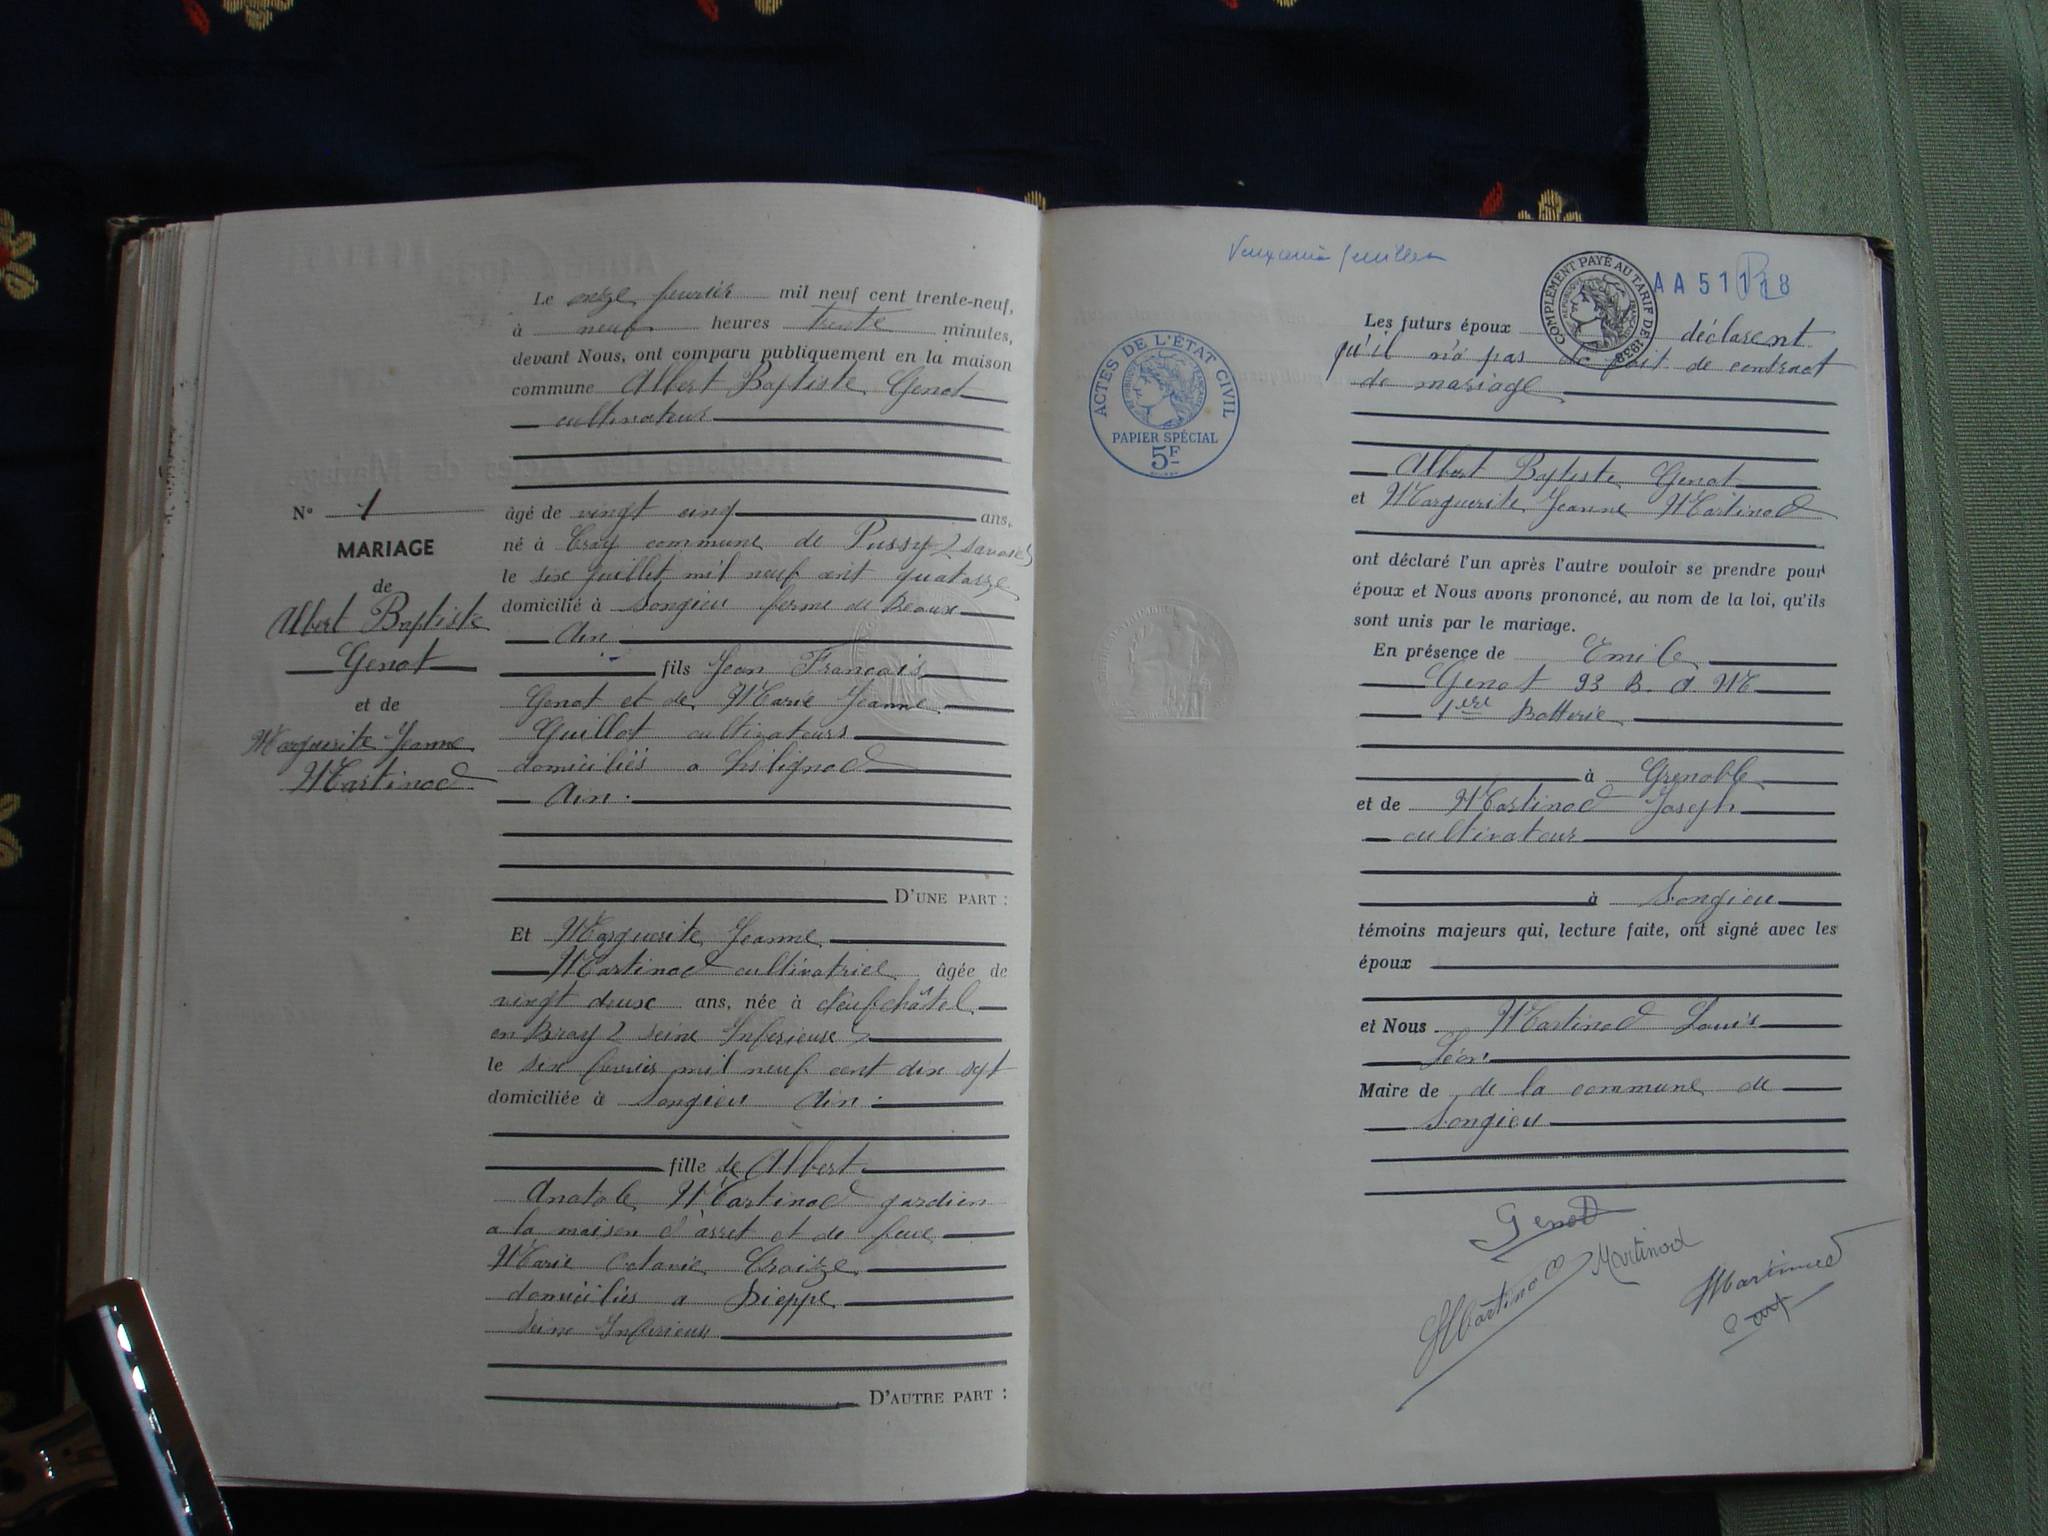 Le onze fevrier mil neuf cent trente-neuf,
à neuf heures trente minutes,
devant Nous, ont comparu publiquement en la maison
commune Albert Baptiste Genot
cultivateur
N° 1
MARIAGE
de
Albert Baptiste
Genot
et de
Marguerite Jeanne
Martinod
âgé de vingt cinq ans,
né à Cray commune de Pussy (savoie)
le six juillet mil neuf cent quatorze
domicilié à Songieu ferme de Beaux
Ain
fils Jean Francais
Genot et de Marie Jeanne
Guillot cultivateurs
domiciliés a Lilignod
Ain.
D'UNE PART :
Et Marguerite Jeanne
Martinod cultivatrice âgée de
vingt deux ans, née à Neufchâtel
en Bray (seine Inferieure)
le six fevrier mil neuf cent dix sept
domiciliée à Songieu Ain.
fille de Albert
Anatole Martinod gardien
a la maison d'arret et de feue
Marie Octavie Croize
domiciliés a Dieppe
seine Inferieur
D'AUTRE PART :
feuillet
COMPLÉMENT PAYÉ AU TARIF DE 1938
AA 51118
ACTES DE L'ÉTAT CIVIL
RÉPUBLIQUE FRANÇAISE
PAPIER SPÉCIAL
5F
Les futurs époux déclarent
qu'il n'a pas fait de contract
de mariage
Albert Baptiste Genot
et Marguerite Jeanne Martinod
ont déclaré l'un après l'autre vouloir se prendre pour
époux et Nous avons prononcé, au nom de la loi, qu'ils
sont unis par le mariage.
En présence de Emile
Genot 93 B. A. M
1ere Batterie
à Grenoble
et de Martinod Joseph
cultivateur
à Songieu
témoins majeurs qui, lecture faite, ont signé avec les
époux
et Nous Martinod Louis
Léon
Maire de de la commune de
Songieu
Genod
Martinod
Martinod
Martinod